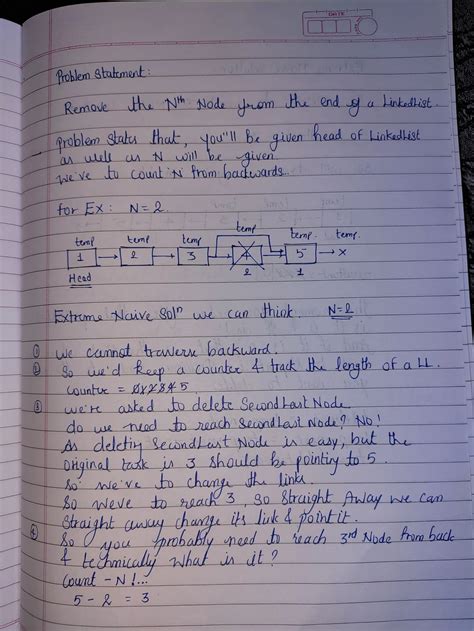 DATE
Problem Statement:
Remove the Nth Node from the end of a LinkedList.
Problem States that, you'll be given head of LinkedList
as well as N will be given
we've to count N from backwards..
for Ex: N=2.
temp temp temp temp temp. temp.
1 2 3 4 5 x
Head 2 1
Extreme Naive Soln we can think. N=2
① we cannot traverse backward.
② So we'd keep a counter & track the length of a LL.
counter = 0 1 2 3 4 5
③ we're asked to delete Second Last Node.
do we need to reach Second Last Node? No!
As deleting Second Last Node is easy, but the
original task is 3 should be pointing to 5.
So we've to change the links.
So we've to reach 3, so Straight Away we can
Straight away change its link & point it.
④ So you probably need to reach 3rd Node from back
& technically what is it?
Count - N!...
5 - 2 = 3